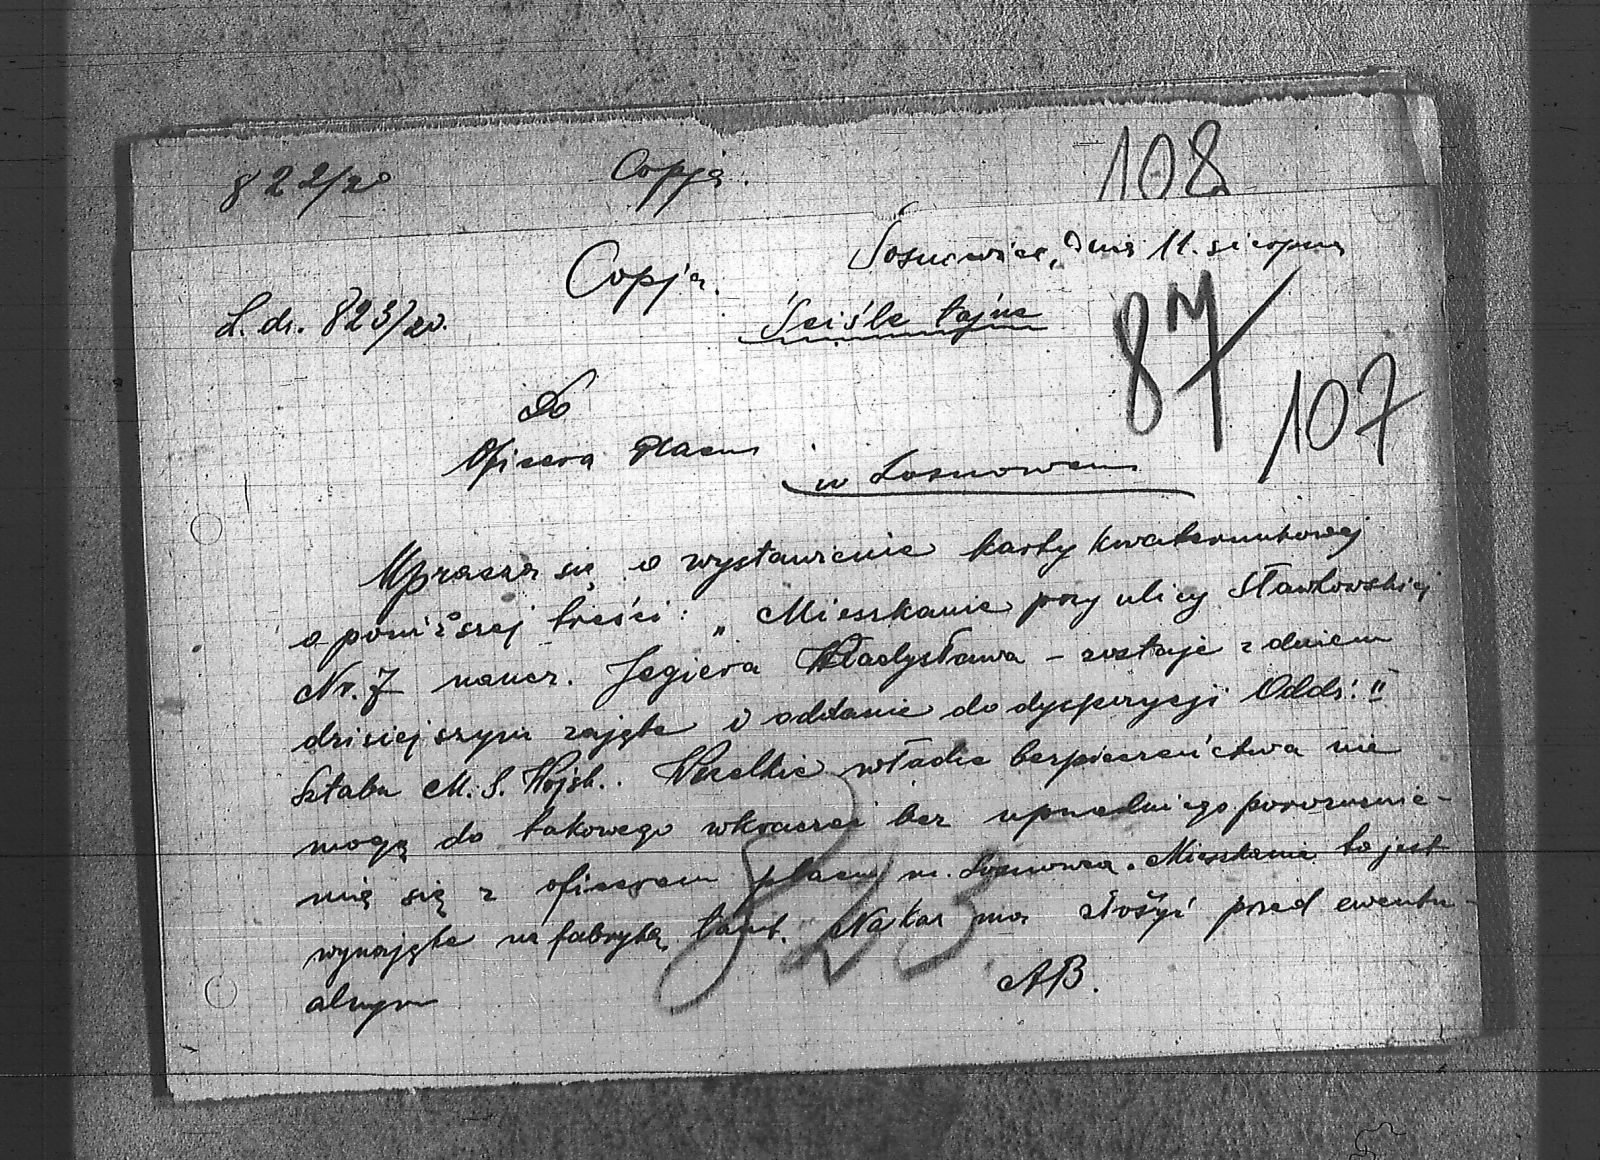 822/20 Copja. 108
Sosnowice, dnia 11. sierpnia
Copja.
L. dz. 823/20.
Ściśle tajne
87
107
Do
Oficera Placu
w Sosnowcu
Uprasza się o wystawienie karty kwaterunkowej
o poniższej treści: „Mieszkanie przy ulicy Sławkowskiej
Nr. 7 naucz. Jegiera Władysława – zostaje z dniem
dzisiejszym zajęte i oddane do dyspozycji Oddz. II
Sztabu M. S. Wojsk.. Wszelkie władze bezpieczeństwa nie
mogą do takowego wkraczać bez uprzedniego porozumie-
nia się z oficerem placu m. Sosnowca. Mieszkanie to jest
wynajęte na fabrykę tamt. Nakaz ma złożyć przed ewentu-
alnym
823.
AB.